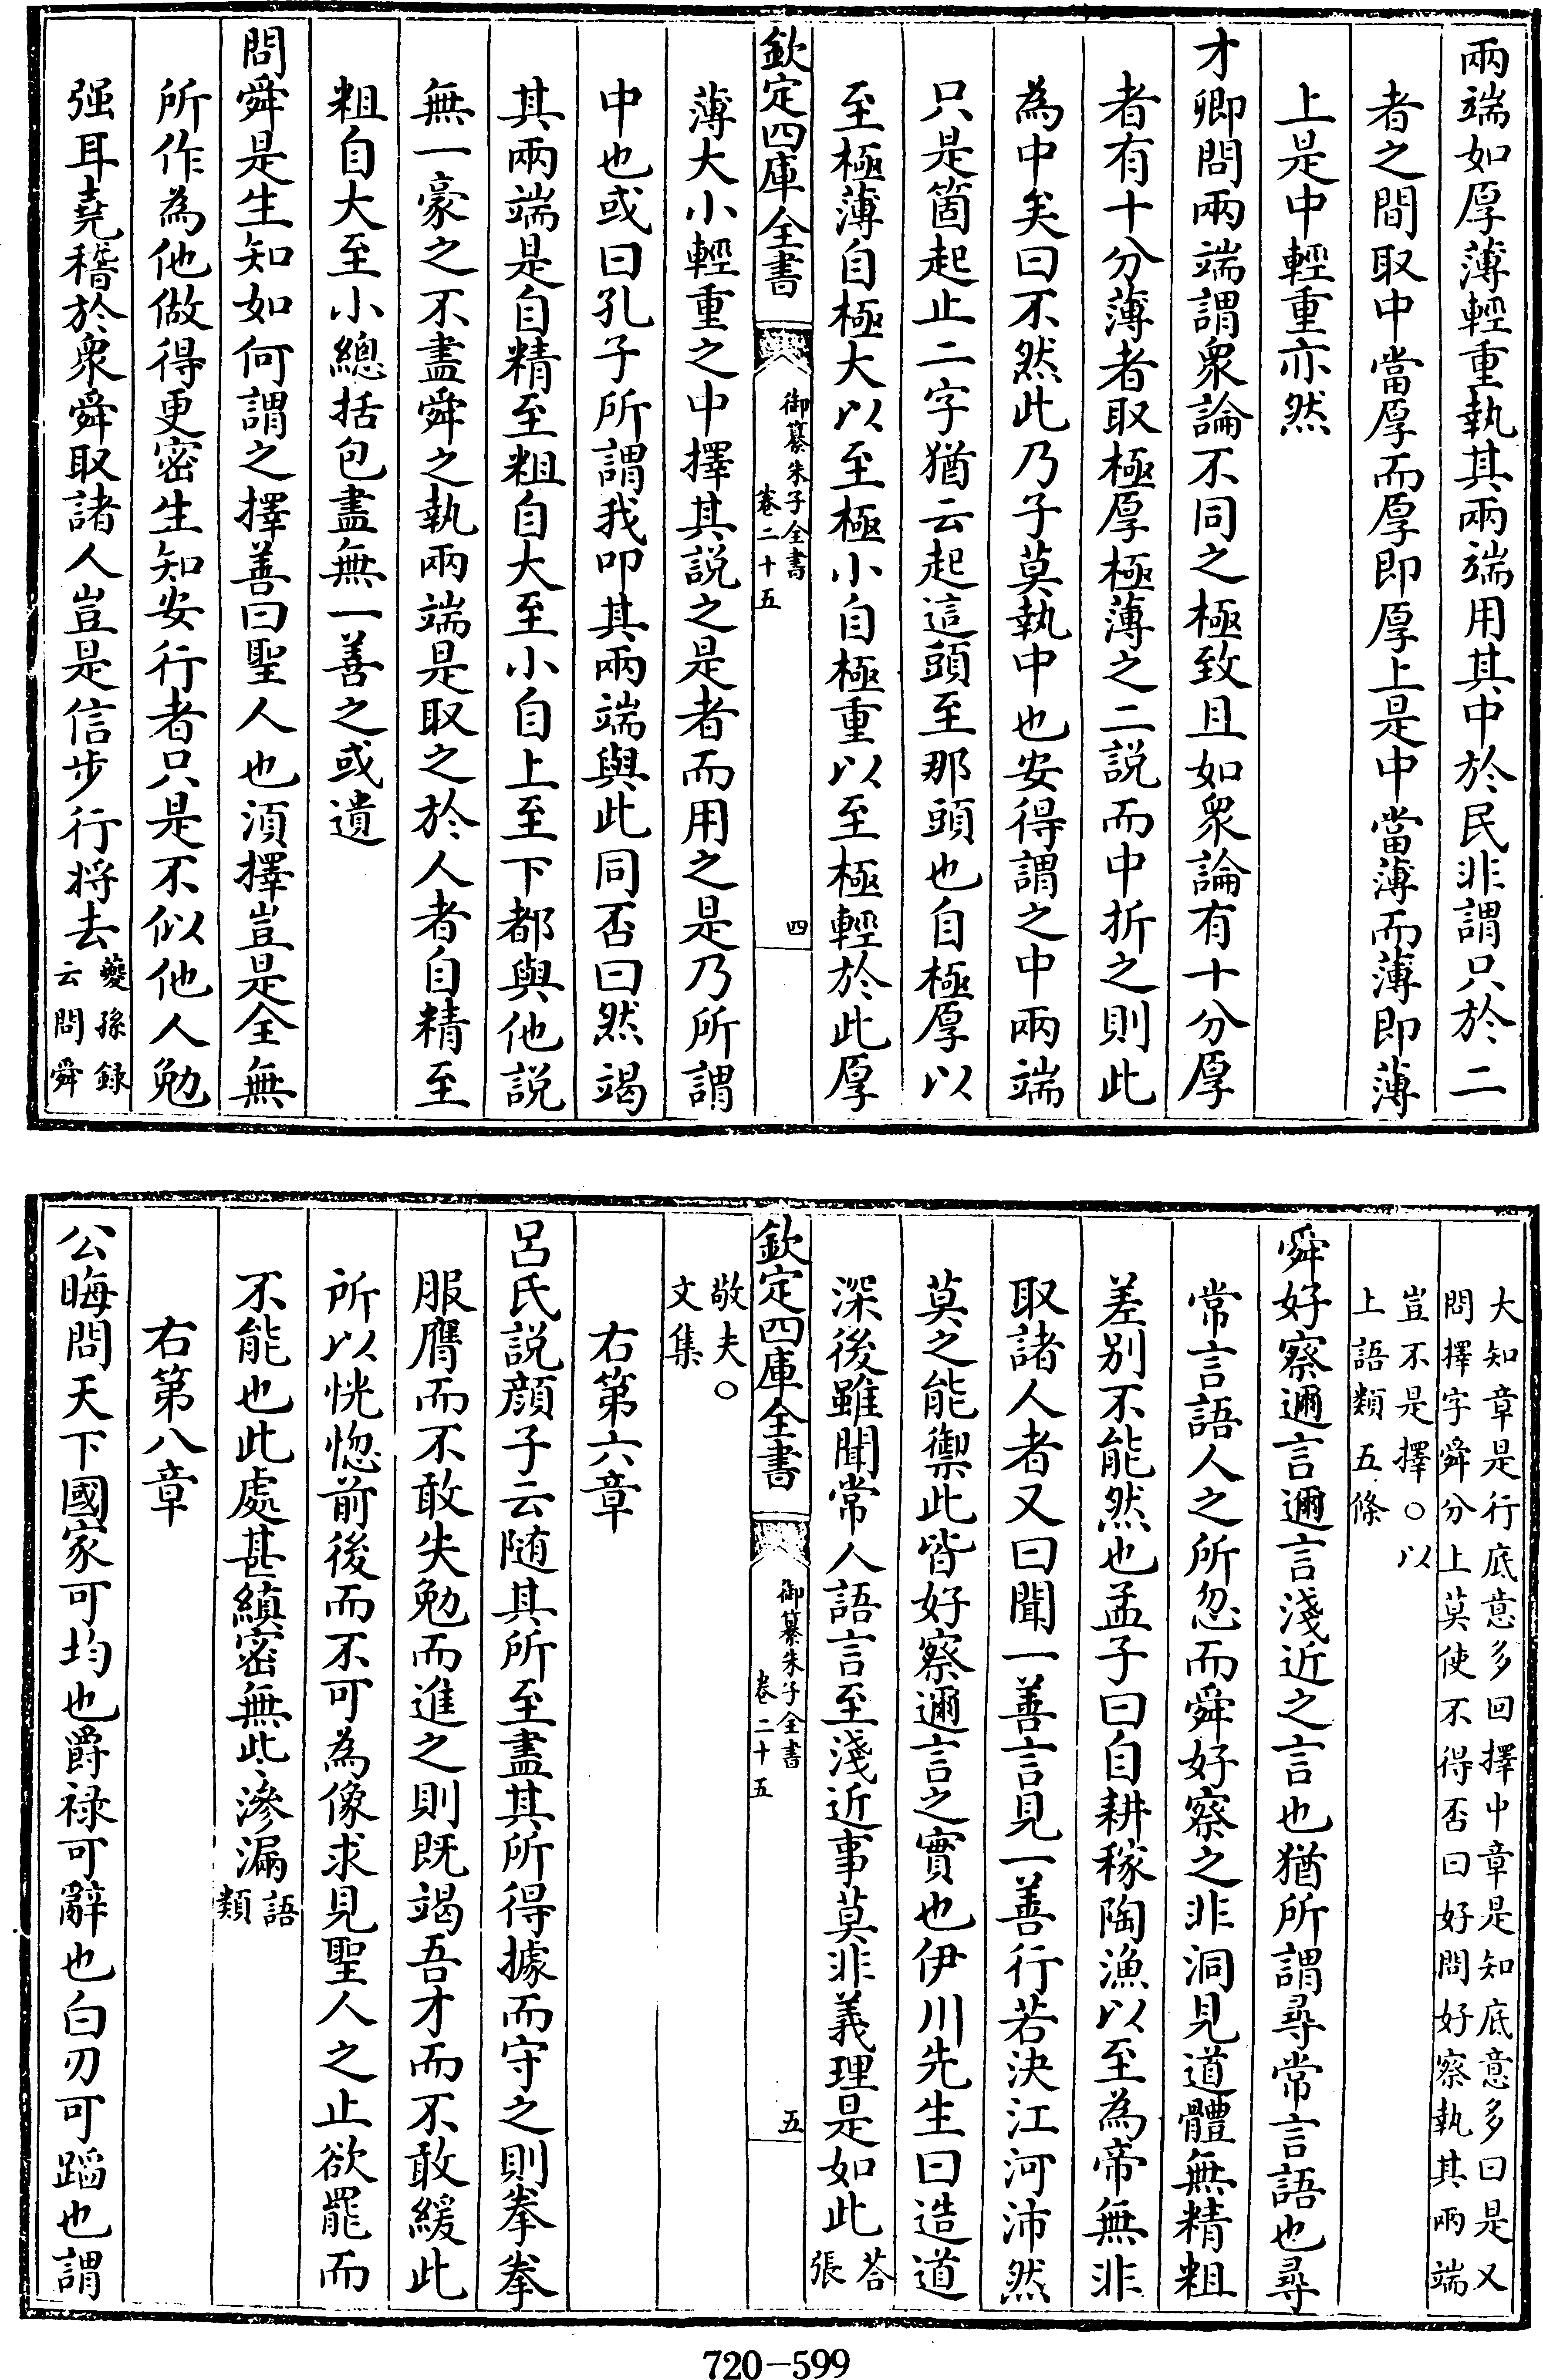 兩端如厚薄輕重執其兩端用其中於民非謂只於二
者之間取中當厚而厚即厚上是中當薄而薄即薄
上是中輕重亦然
才卿問兩端謂衆論不同之極致且如衆論有十分厚
者有十分薄者取極厚極薄之二説而中折之則此
為中矣曰不然此乃子莫執中也安得謂之中兩端
只是箇起止二字猶云起這頭至那頭也自極厚以
至極薄自極大以至極小自極重以至極輕於此厚
欽定四庫全書
御纂朱子全書
卷二十五
四
薄大小輕重之中擇其説之是者而用之是乃所謂
中也或曰孔子所謂我叩其兩端與此同否曰然竭
其兩端是自精至粗自大至小自上至下都與他説
無一豪之不盡舜之執兩端是取之於人者自精至
粗自大至小總括包盡無一善之或遺
問舜是生知如何謂之擇善曰聖人也須擇豈是全無
所作為他做得更密生知安行者只是不似他人勉
强耳堯稽於衆舜取諸人豈是信步行將去
夔孫録
云問舜
大知章是行底意多回擇中章是知底意多曰是又
問擇字舜分上莫使不得否曰好問好察執其兩端
豈不是擇〇以
上語類五條
舜好察邇言邇言淺近之言也猶所謂尋常言語也尋
常言語人之所忽而舜好察之非洞見道體無精粗
差别不能然也孟子曰自耕稼陶漁以至為帝無非
取諸人者又曰聞一善言見一善行若決江河沛然
莫之能禦此皆好察邇言之實也伊川先生曰造道
深後雖聞常人語言至淺近事莫非義理是如此
荅
張
欽定四庫全書
御纂朱子全書
卷二十五
五
敬夫〇
文集
右第六章
呂氏説顔子云随其所至盡其所得據而守之則拳拳
服膺而不敢失勉而進之則既竭吾才而不敢緩此
所以恍惚前後而不可為像求見聖人之止欲罷而
不能也此處甚縝密無此滲漏
語
類
右第八章
公晦問天下國家可均也爵禄可辭也白刃可蹈也謂
720-599